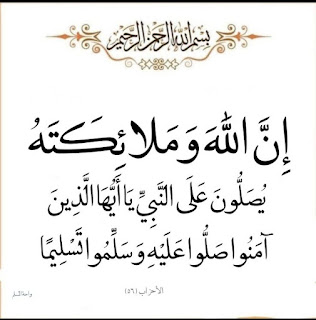 بِسْمِ اللهِ الرَّحْمٰنِ الرَّحِيْمِ
إِنَّ اللهَ وَمَلائِكَتَهُ
يُصَلُّونَ عَلَى النَّبِيِّ يَا أَيُّهَا الَّذِينَ
آمَنُوا صَلُّوا عَلَيْهِ وَسَلِّمُوا تَسْلِيمًا
الأحزاب (٥٦)